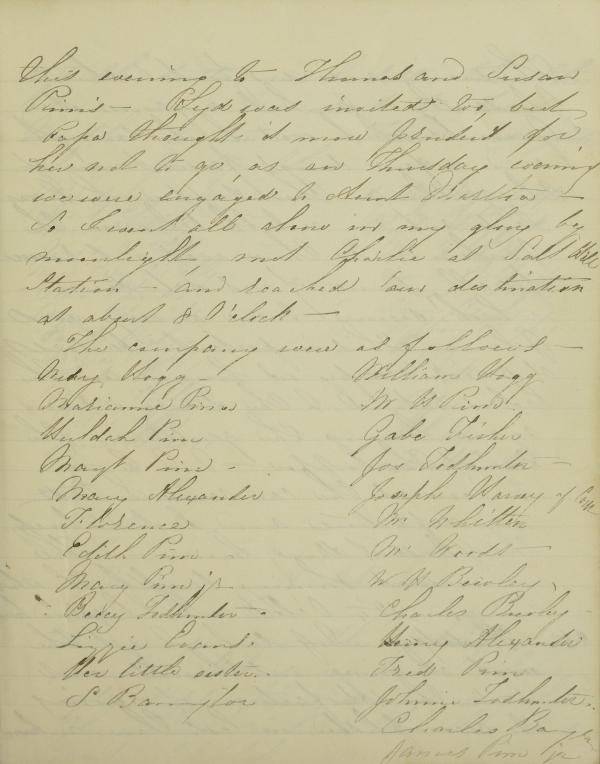 this evening to Thomas and Susan
Pim's – was invited too, but
Papa thought it more prudent for
her not to go, as on Thursday evening
we were engaged to Aunt –
So I went all alone in my glory by
moonlight met Charlie at Salt Hill
Station – and reached our destination
at about 8 O'clock –
The company were as follows –
Hogg – William Hogg
Marianne Pim W H Pim
Huldah Pim Gabe Fisher
Pim – Jos Todhunter –
Mary Alexander Joseph of
Florence Mr Whitten
Edith Pim Mr Woods –
Mary Pim jr W H Bewley
Beccy Todhunter – Charles Bewley –
Lizzie Evans Henry Alexander
Her little sister – Fred Pim
S Barrington Johnnie Todhunter
Charles
James Pim jr